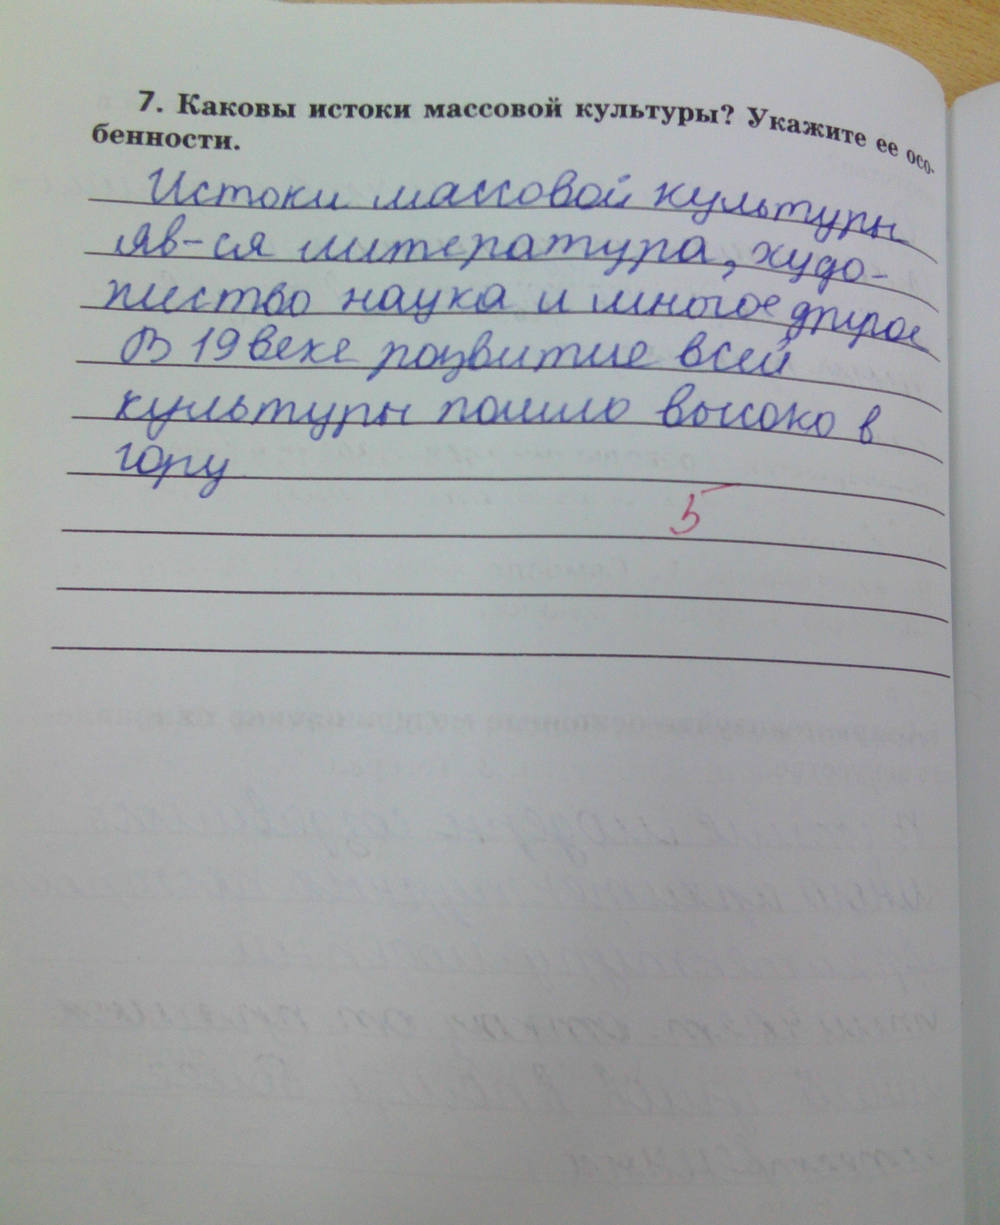 7. Каковы истоки массовой культуры? Укажите ее осо-
бенности.
Истоки массовой культуры
яв-ся литература, худо-
жество наука и многое другое
В 19 веке развитие всей
культуры пошло высоко в
гору
5